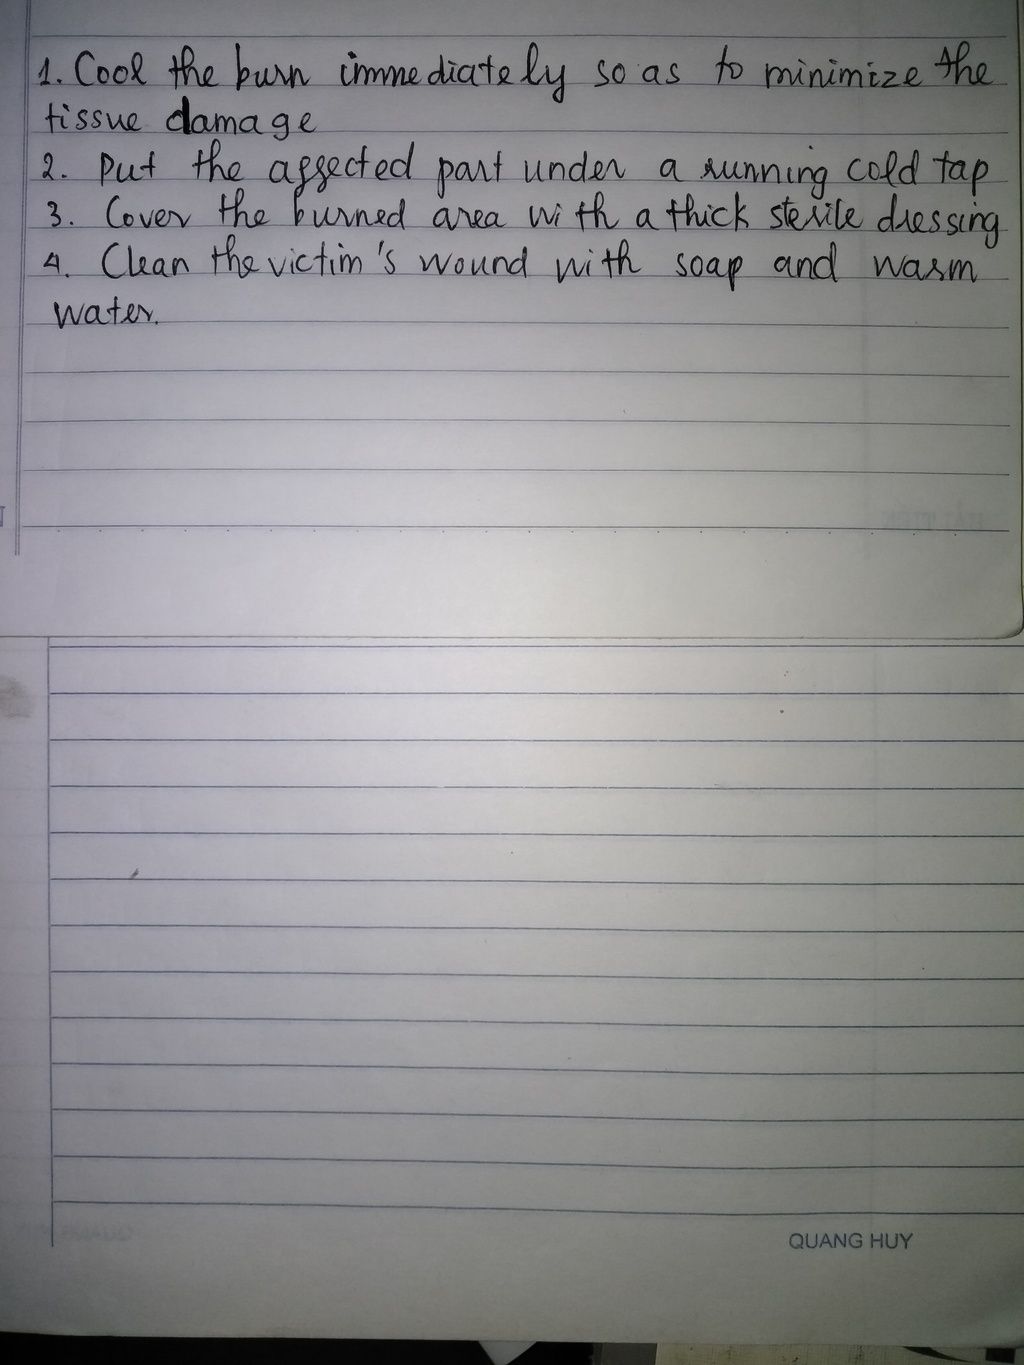 1. Cool the burn immediately so as to minimize the
tissue damage
2. Put the affected part under a running cold tap
3. Cover the burned area with a thick sterile dressing
4. Clean the victim's wound with soap and warm
water.
QUANG HUY